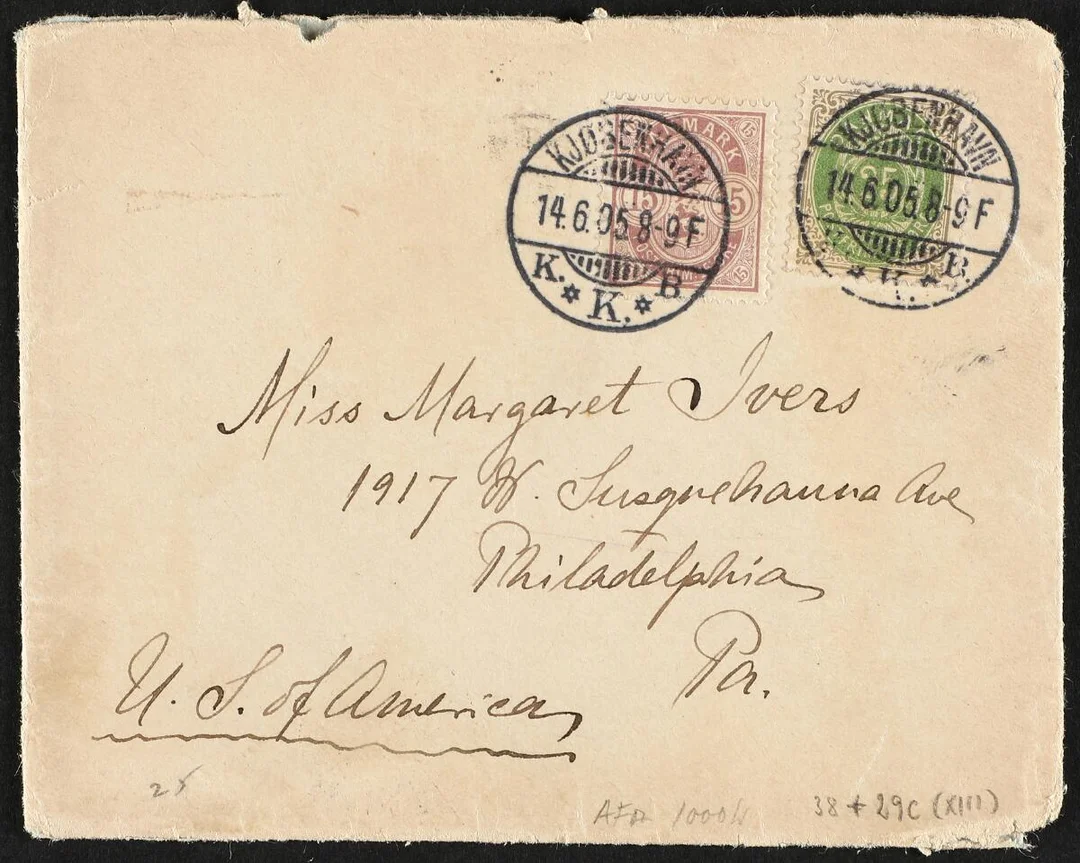 KJØBENHAVN
14.6.05.8-9F
K. K. B
DANMARK
15 15
KJØBENHAVN
14.6.05.8-9F
K. B.
25
Miss Margaret Ivers
1917 W. Susquehanna Ave
Philadelphia
Pa.
U. S. of America
25
AFA 1000
38 + 29c (XIII)